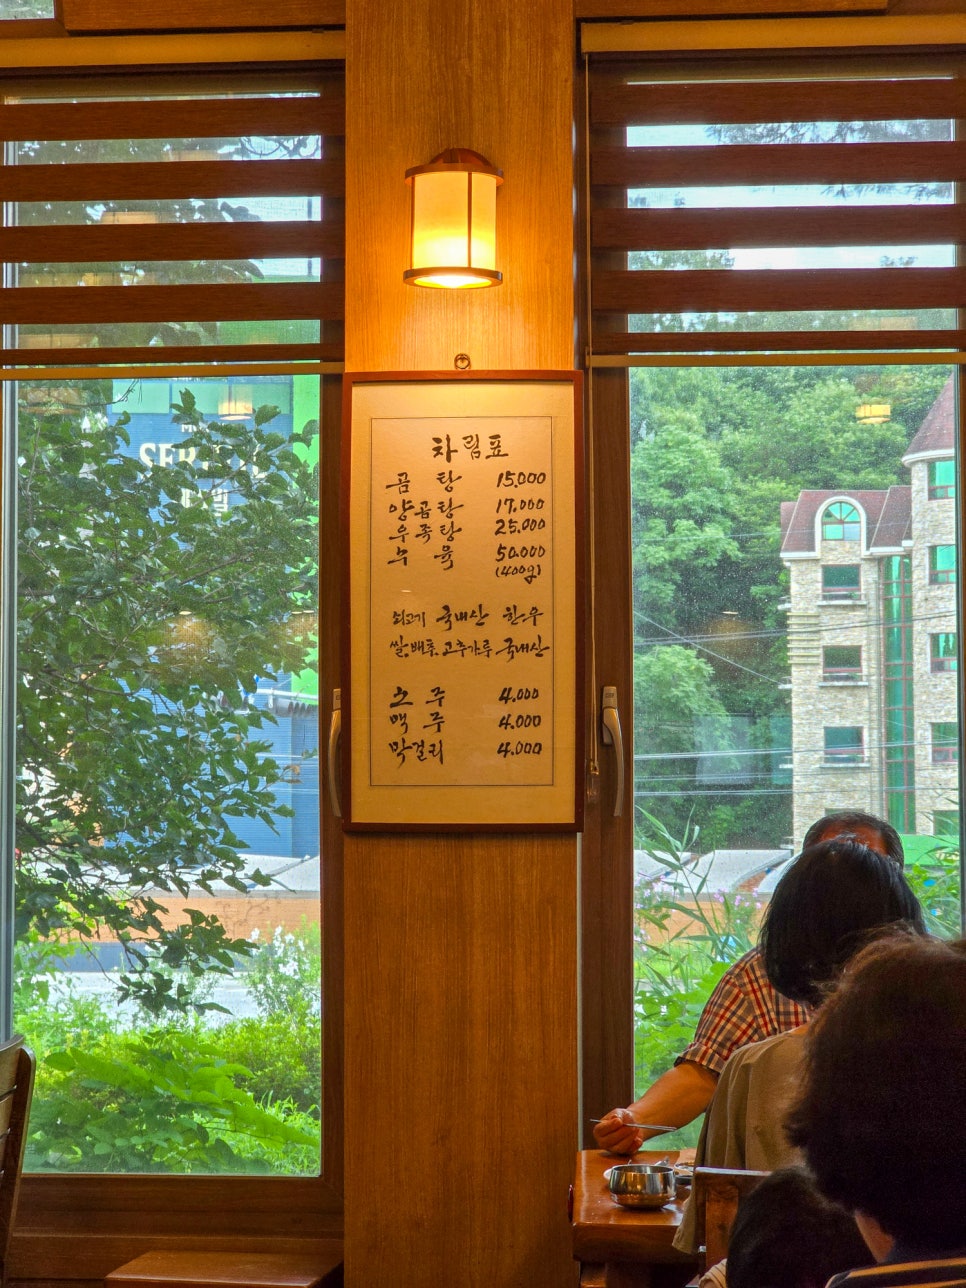 차림표
곰 탕 15,000
양곰탕 17,000
우족탕 25,000
수 육 50,000
(400g)
쇠고기 국내산 한우
쌀,배추,고추가루 국내산
소 주 4,000
맥 주 4,000
막걸리 4,000